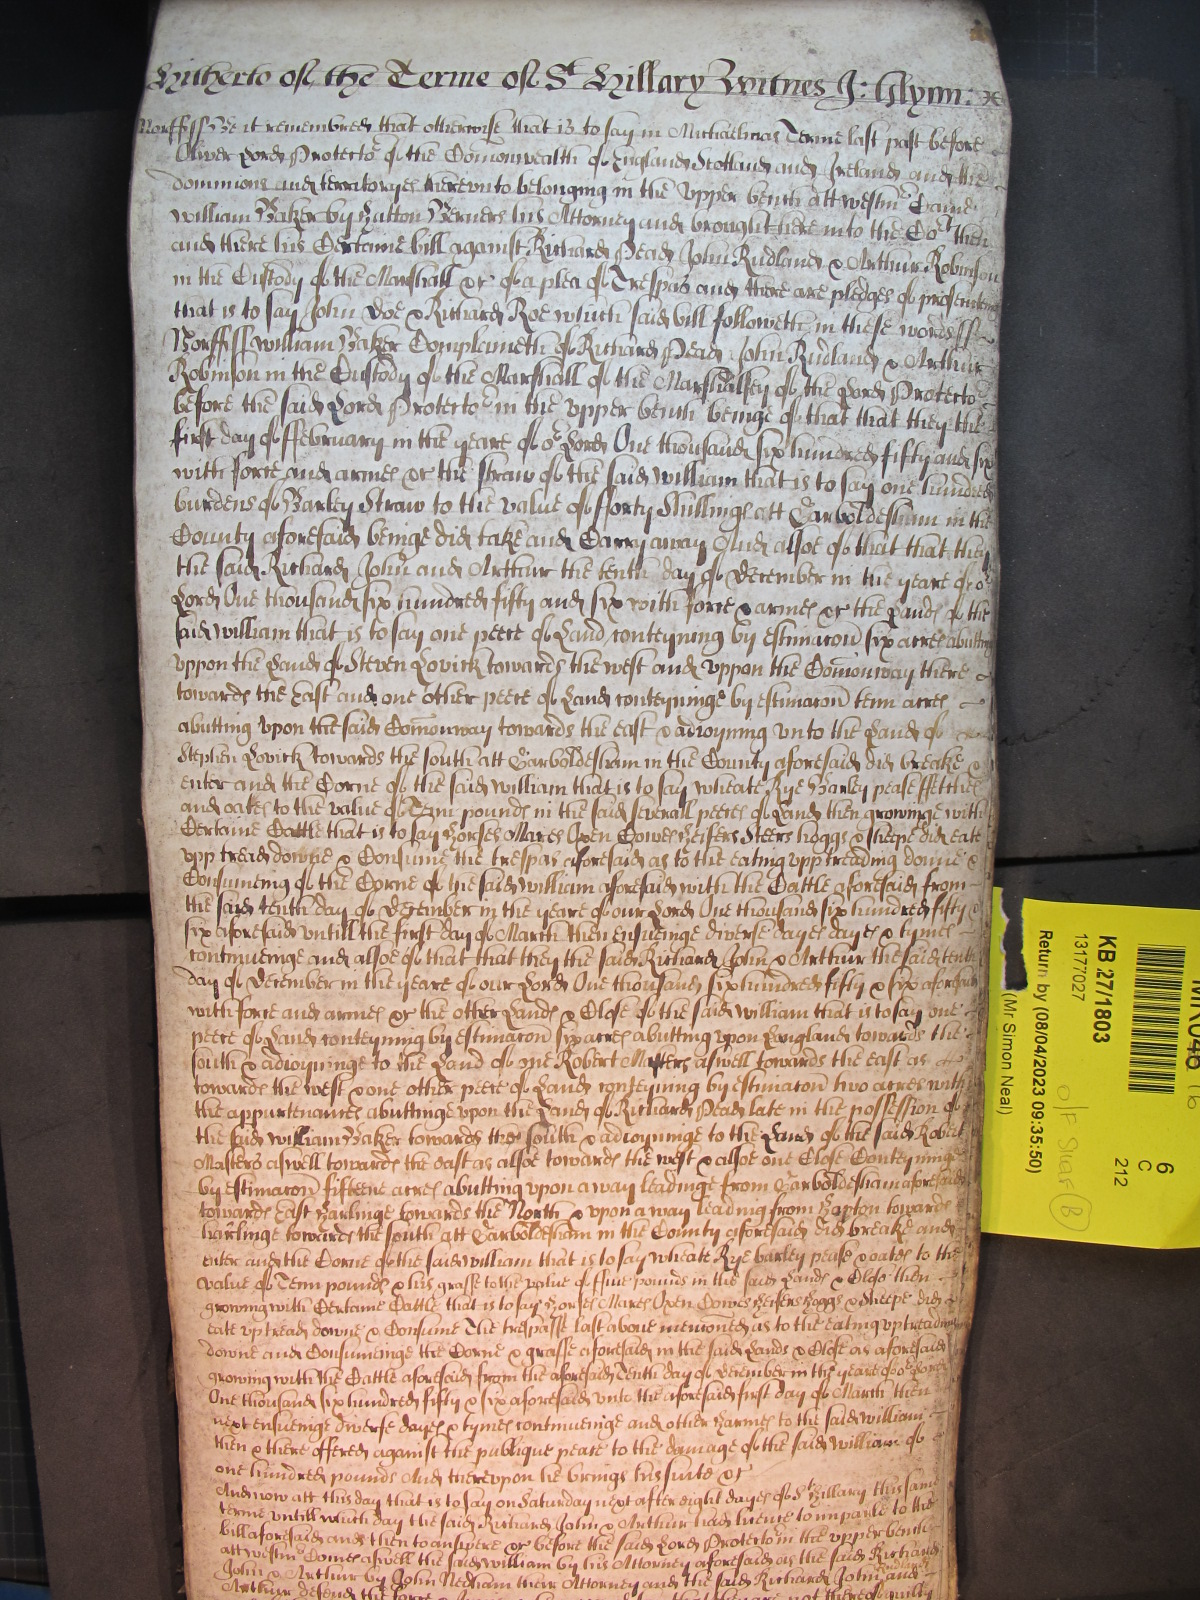 Hitherto of the Terme of St Hillary Witnes J: Glynn:
Norff ss Be it remembred that otherwise that is to say in Michaelmas Terme last past before
Oliver Lord Protector of the Comonwealth of England Scotland and Ireland and the
dominions and territoryes thereunto belonging in the upper bench att westmr Came
William Baker by Hutton Berners his Attorney and brought here into the Cort then
and there his Certaine bill against Richard Mead John Rudland & Arthur Robinson
in the Custody of the Marshall &c of a plea of Trespas and there are pledges of prosecuting
that is to say John Doe & Richard Roe which said bill followeth in these words ss
Norff ss William Baker Complaineth of Richard Mead John Rudland & Arthur
Robinson in the Custody of the Marshall of the Marshallsey of the Lord Protector
before the said Lord Protector in the upper bench beinge of that that they the
first day of ffebruary in the yeare of or Lord One thousand six hundred fifty and six
with force and armes &c the straw of the said William that is to say one hundred
burdens of Barley Straw to the value of fforty Shillings att Garboldesham in the
County aforesaid beinge did take and Carry away And alsoe of that that they
the said Richard John and Arthur the tenth day of December in the yeare of or
Lord One thousand six hundred fifty and six with force & armes &c the Lands of the
said William that is to say one peece of Land conteyning by estimacon six acres abutting
uppon the Lands of Steven Lovick towards the west and uppon the Comonway there
towards the East and one other peece of Land conteyninge by estimacon tenn acres
abutting upon the said Comonway towards the east & adioyning unto the Lands of
Stephen Lovick towards the south att Garboldesham in the County aforesaid did breake &
enter and the Corne of the said William that is to say wheate Rye Barley pease ffetches
and oates to the value of Tenn pounds in the said severall peeces of Land then growinge with
Certaine Cattle that is to say Horses Mares Oxen Cowes Heifers Steers hoggs & sheepe did eate
upp tread downe & Consume the trespas aforesaid as to the eating upp treading downe &
Consumeing of the Corne of the said William aforesaid with the Cattle aforesaid from
the said tenth day of December in the yeare of our Lord One thousand six hundred fifty &
six aforesaid untill the first day of March then ensueinge diverse dayes dayes & tymes
continueinge and alsoe of that that they the said Richard John & Arthur the said tenth
day of December in the yeare of our Lord One thousand six hundred fifty & six aforesaid
with force and armes &c the other Lands & Close of the said William that is to say one
peece of Land conteyning by estimacon six acres abutting upon Longland towards the
south & adioyninge to the Land of one Robert Masters aswell towards the east as
towards the west & one other peece of Land conteyning by estimacon two acres with
the appurtenances abuttinge upon the Lands of Richard Mead late in the possession of
the said William Baker towards the south & adioyninge to the Lands of the said Robert
Masters aswell towards the East as alsoe towards the west & alsoe one Close Conteyninge
by estimacon fifteene acres abutting upon a way leadinge from Garboldesham aforesaid
towards East Harlinge towards the North & upon a way leading from Hopton towards
harlinge towards the south att Garboldesham in the County aforesaid did breake and
enter and the Corne of the said William that is to say wheate Rye barley pease & oates to the
value of Tenn pounds & his grasse to the value of ffive pounds in the said Lands & Close then
growing with Certaine Cattle that is to say Horses Mares Oxen Cowes Heifers Hoggs & sheepe did
eate up tread downe & Consume The trespasse last above mencioned as to the eating up treading
downe and Consumeinge the Corne & grasse aforesaid in the said Lands & Close as aforesaid
growing with the Cattle aforesaid from the aforesaid Tenth day of December in the yeare of or Lord
One thousand six hundred fifty & six aforesaid unto the aforesaid first day of March then
next ensueinge diverse dayes & tymes continueinge and other Harmes to the said William
then & there offered against the publique peace to the damage of the said William of
one hundred pounds And thereupon he brings his suite &c
And now att this day that is to say on Saturday next after eight dayes of St Hillary this same
terme untill which day the said Richard John & Arthur had licence to imparle to the
bill aforesaid and then to answere &c before the said Lord Protector in the upper bench
att westmr Comes aswell the said William by his Attorney aforesaid as the said Richard
John & Arthur by John Nedham their Attorney and the said Richard John and
Arthur defend the force that they are not thereof guilty
KB 27/1803
13177027
Return by (08/04/2023 09:35:50)
(Mr Simon Neal)
6
C
212
O/F Shelf B